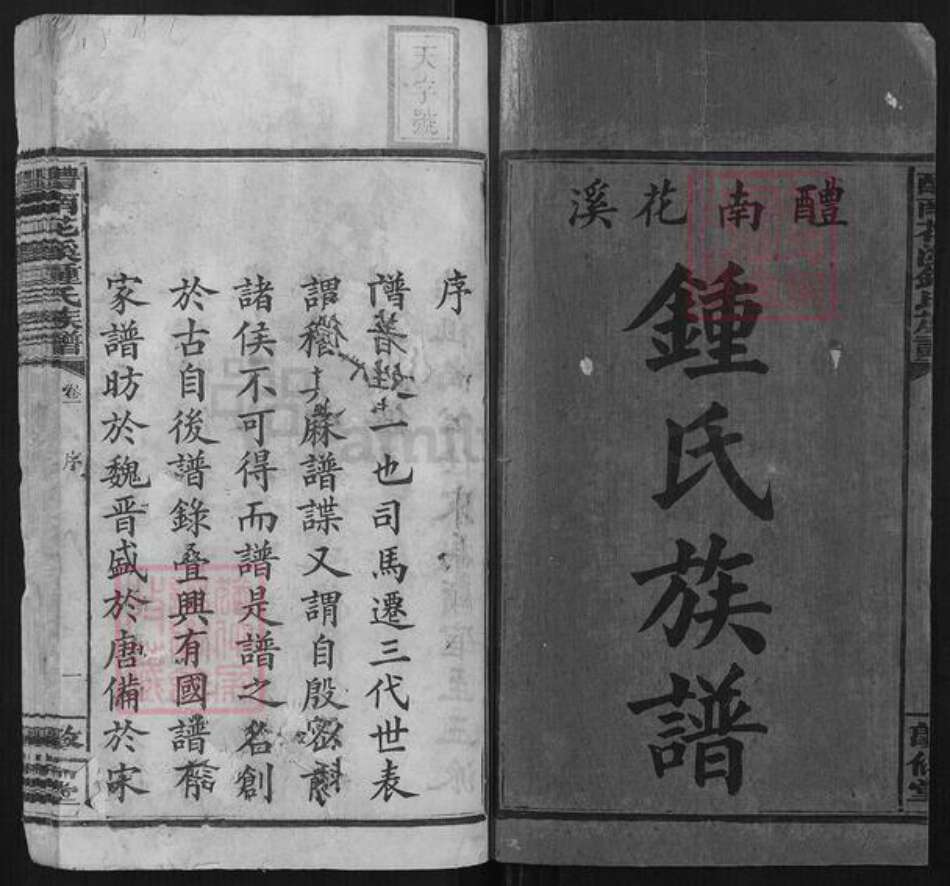 醴南花溪
鍾氏族譜
天字號
序
譜者一也司馬遷三代世表
謂稽其麻譜諜又謂自殷以前
諸侯不可得而譜是譜之名創
於古自後譜錄叠興有國譜有
家譜昉於魏晋盛於唐備於宋
醴南花溪鍾氏族譜
卷一
序
一
敦
堂